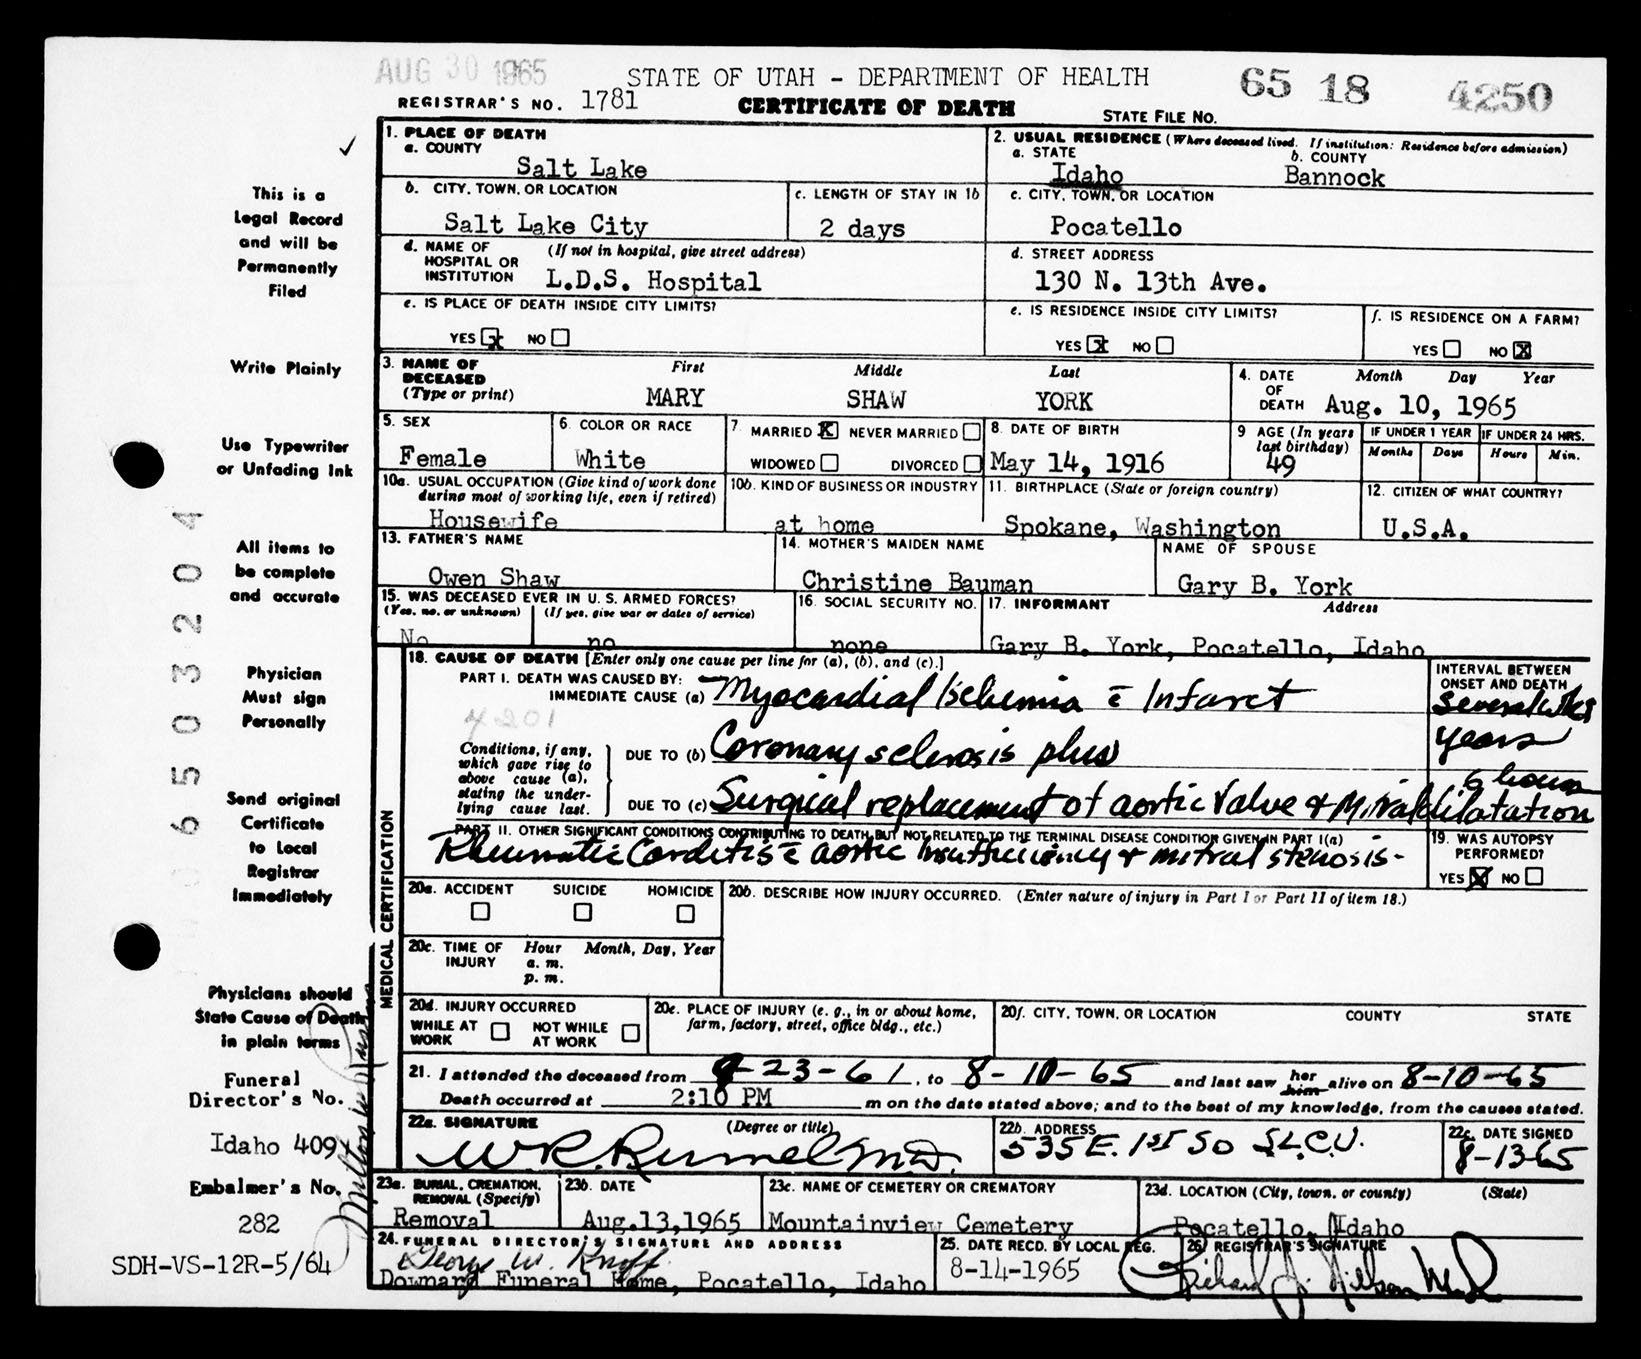 AUG 30 1965
STATE OF UTAH - DEPARTMENT OF HEALTH
65 18 4250
REGISTRAR'S NO. 1781
CERTIFICATE OF DEATH
STATE FILE NO.
1. PLACE OF DEATH
a. COUNTY
Salt Lake
2. USUAL RESIDENCE (Where deceased lived. If institution: Residence before admission)
a. STATE
Idaho
b. COUNTY
Bannock
b. CITY, TOWN, OR LOCATION
Salt Lake City
c. LENGTH OF STAY IN 1b
2 days
c. CITY, TOWN, OR LOCATION
Pocatello
d. NAME OF HOSPITAL OR INSTITUTION (If not in hospital, give street address)
L.D.S. Hospital
d. STREET ADDRESS
130 N. 13th Ave.
e. IS PLACE OF DEATH INSIDE CITY LIMITS?
YES x NO
e. IS RESIDENCE INSIDE CITY LIMITS?
YES x NO
f. IS RESIDENCE ON A FARM?
YES NO x
3. NAME OF DECEASED (Type or print)
First Middle Last
MARY SHAW YORK
4. DATE OF DEATH
Month Day Year
Aug. 10, 1965
5. SEX
Female
6. COLOR OR RACE
White
7. MARRIED x NEVER MARRIED
WIDOWED DIVORCED
8. DATE OF BIRTH
May 14, 1916
9 AGE (In years last birthday)
49
IF UNDER 1 YEAR
Months Days
IF UNDER 24 HRS.
Hours Min.
10a. USUAL OCCUPATION (Give kind of work done during most of working life, even if retired)
Housewife
10b. KIND OF BUSINESS OR INDUSTRY
at home
11. BIRTHPLACE (State or foreign country)
Spokane, Washington
12. CITIZEN OF WHAT COUNTRY?
U.S.A.
13. FATHER'S NAME
Owen Shaw
14. MOTHER'S MAIDEN NAME
Christine Bauman
NAME OF SPOUSE
Gary B. York
15. WAS DECEASED EVER IN U. S. ARMED FORCES?
(Yes, no, or unknown) (If yes, give war or dates of service)
No no
16. SOCIAL SECURITY NO.
none
17. INFORMANT Address
Gary B. York, Pocatello, Idaho
MEDICAL CERTIFICATION
18. CAUSE OF DEATH [Enter only one cause per line for (a), (b), and (c).]
INTERVAL BETWEEN ONSET AND DEATH
PART I. DEATH WAS CAUSED BY:
IMMEDIATE CAUSE (a) Myocardial Ischemia c̄ Infarct
several wks
4201
years
Conditions, if any, which gave rise to above cause (a), stating the underlying cause last.
DUE TO (b) Coronary sclerosis plus
6 hours
DUE TO (c) Surgical replacement of aortic valve & Mitral dilatation
PART II. OTHER SIGNIFICANT CONDITIONS CONTRIBUTING TO DEATH BUT NOT RELATED TO THE TERMINAL DISEASE CONDITION GIVEN IN PART I(a)
Rheumatic Carditis c̄ aortic insufficiency & mitral stenosis-
19. WAS AUTOPSY PERFORMED?
YES x NO
20a. ACCIDENT SUICIDE HOMICIDE
20b. DESCRIBE HOW INJURY OCCURRED. (Enter nature of injury in Part I or Part II of item 18.)
20c. TIME OF INJURY Hour Month, Day, Year
a. m.
p. m.
20d. INJURY OCCURRED
WHILE AT WORK NOT WHILE AT WORK
20e. PLACE OF INJURY (e. g., in or about home, farm, factory, street, office bldg., etc.)
20f. CITY, TOWN, OR LOCATION COUNTY STATE
21. I attended the deceased from 9-23-61, to 8-10-65 and last saw her him alive on 8-10-65
Death occurred at 2:10 PM m on the date stated above; and to the best of my knowledge, from the causes stated.
22a. SIGNATURE (Degree or title)
W.R. Rumel M.D.
22b. ADDRESS
535 E. 1st So S.L.C.U.
22c. DATE SIGNED
8-13-65
23a. BURIAL, CREMATION, REMOVAL (Specify)
Removal
23b. DATE
Aug.13,1965
23c. NAME OF CEMETERY OR CREMATORY
Mountainview Cemetery
23d. LOCATION (City, town, or county) (State)
Pocatello, Idaho
24. FUNERAL DIRECTOR'S SIGNATURE AND ADDRESS
George W. Knoff
Downard Funeral Home, Pocatello, Idaho
25. DATE RECD. BY LOCAL REG.
8-14-1965
26 REGISTRAR'S SIGNATURE
This is a
Legal Record
and will be
Permanently
Filed
Write Plainly
Use Typewriter
or Unfading Ink
All items to
be complete
and accurate
Physician
Must sign
Personally
Send original
Certificate
to Local
Registrar
Immediately
Physicians should
State Cause of Death
in plain terms
Funeral
Director's No.
Idaho 409
Embalmer's No.
282
SDH-VS-12R-5/64
6503204